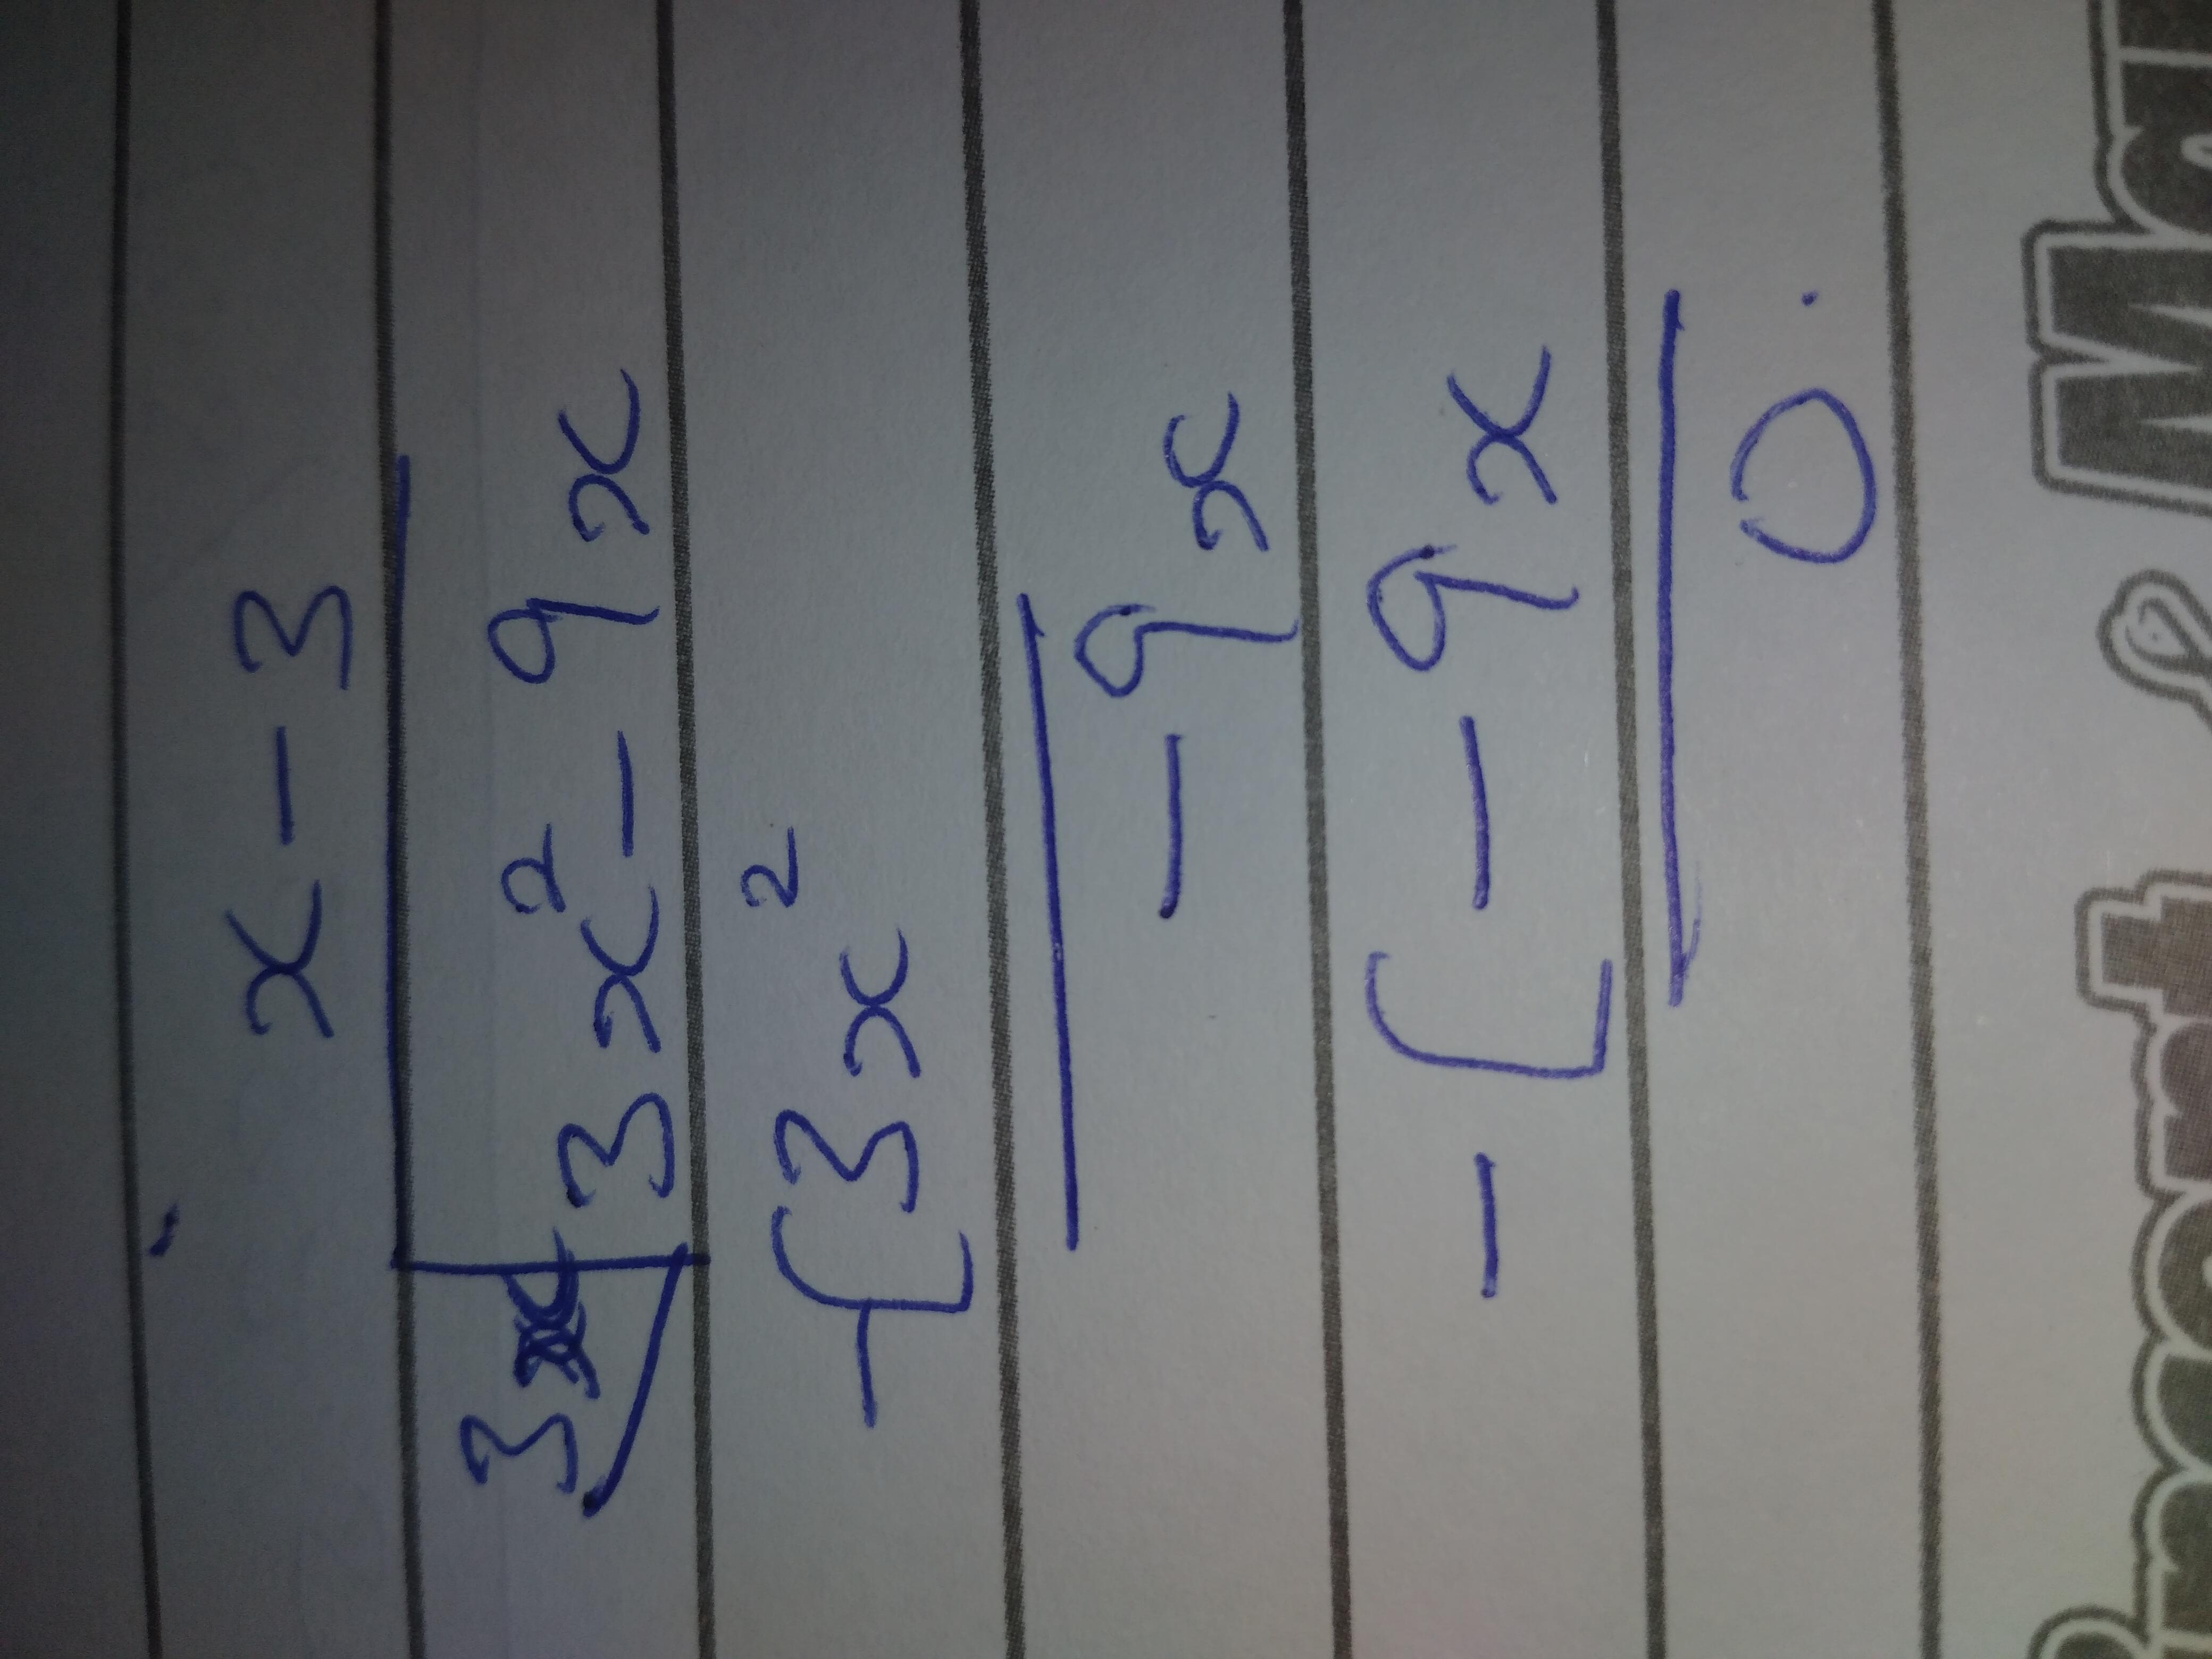 x - 3
3x 3x² - 9x
- [3x²
- 9x
- [ - 9x
0.